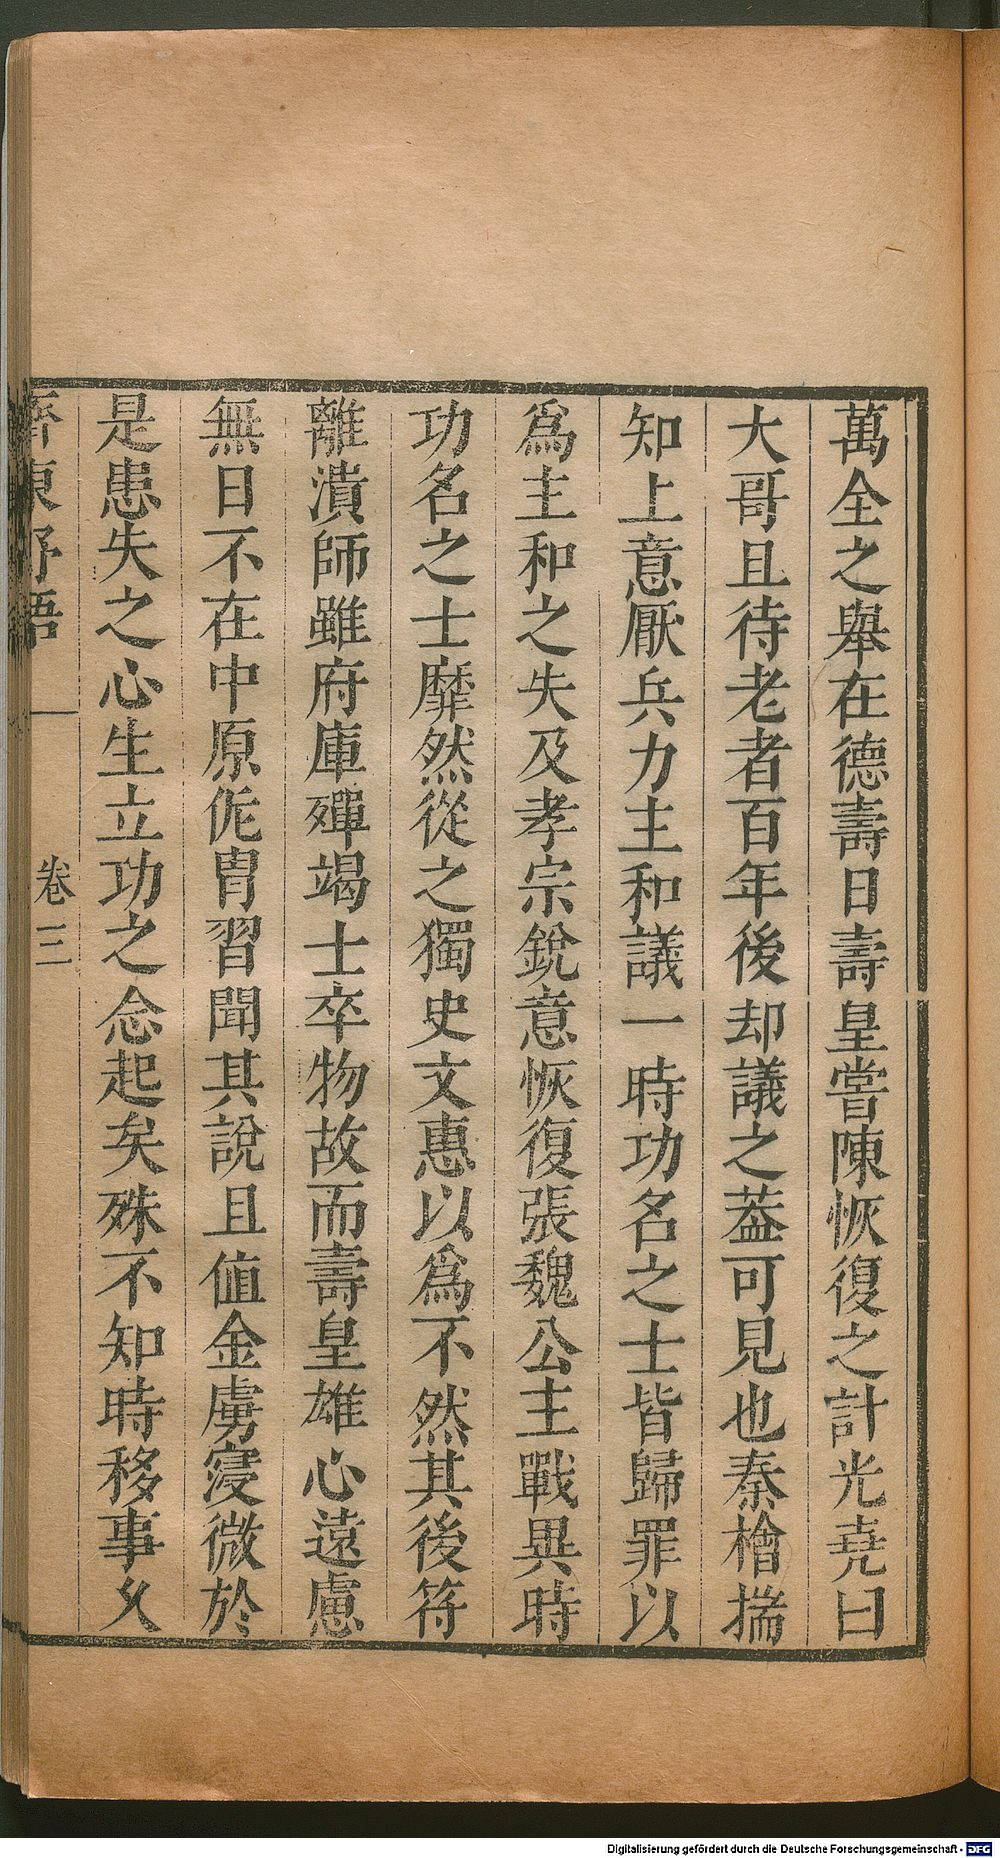 萬全之舉在德壽日壽皇嘗陳恢復之計光堯曰
大哥且待老者百年後却議之葢可見也秦檜揣
知上意厭兵力主和議一時功名之士皆歸罪以
爲主和之失及孝宗銳意恢復張魏公主戰異時
功名之士靡然從之獨史文惠以爲不然其後符
離潰師雖府庫殫竭士卒物故而壽皇雄心遠慮
無日不在中原侂胄習聞其說且値金虜寖微於
是患失之心生立功之念起矣殊不知時移事久
齊東野語 卷三
Digitalisierung gefördert durch die Deutsche Forschungsgemeinschaft - DFG